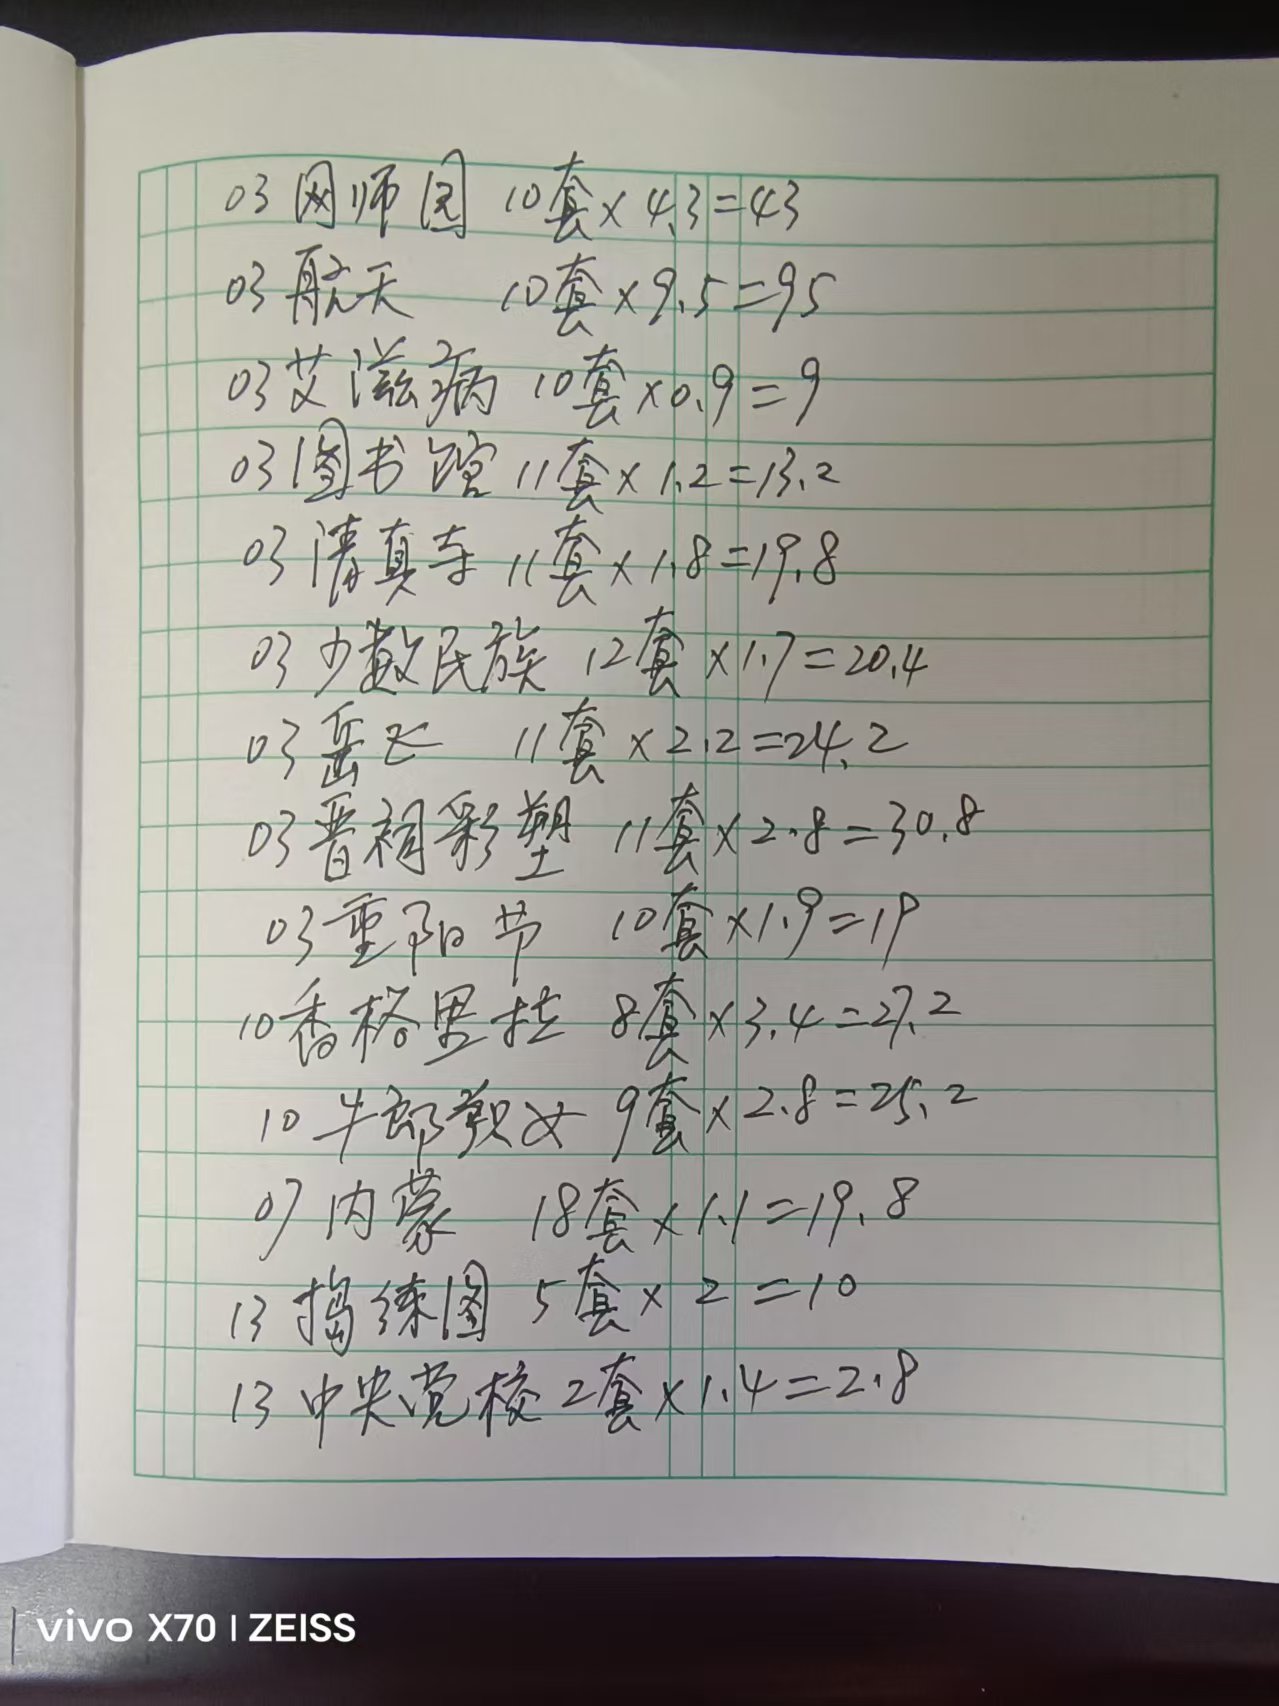 03网师园 10套×4.3=43
03航天 10套×9.5=95
03艾滋病 10套×0.9=9
03图书馆 11套×1.2=13.2
03清真寺 11套×1.8=19.8
03少数民族 12套×1.7=20.4
03岳飞 11套×2.2=24.2
03晋祠彩塑 11套×2.8=30.8
03重阳节 10套×1.9=19
10香格里拉 8套×3.4=27.2
10牛郎织女 9套×2.8=25.2
07内蒙 18套×1.1=19.8
13捣练图 5套×2=10
13中央党校 2套×1.4=2.8
vivo X70 | ZEISS